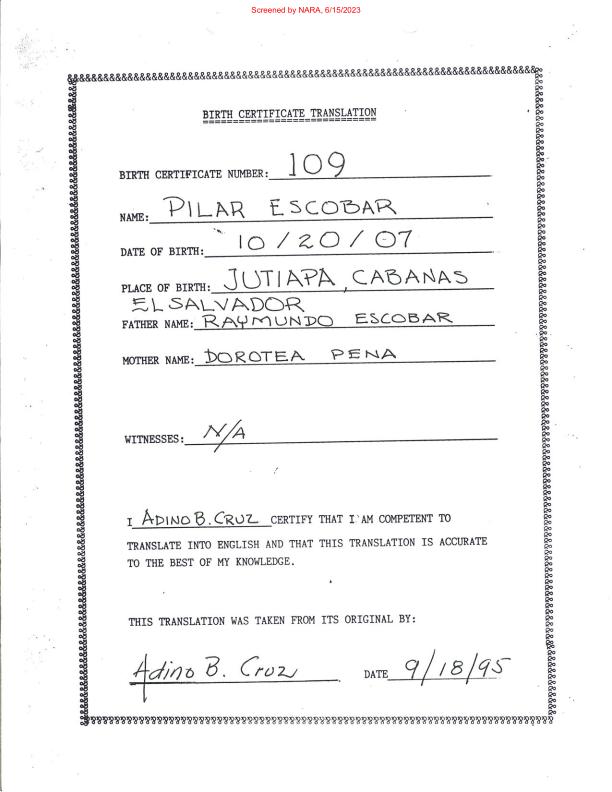 Screened by NARA, 6/15/2023
BIRTH CERTIFICATE TRANSLATION
BIRTH CERTIFICATE NUMBER: 109
NAME: PILAR ESCOBAR
DATE OF BIRTH: 10/20/07
PLACE OF BIRTH: JUTIAPA, CABANAS
EL SALVADOR
FATHER NAME: RAYMUNDO ESCOBAR
MOTHER NAME: DOROTEA PENA
WITNESSES: N/A
I ADINO B. CRUZ CERTIFY THAT I AM COMPETENT TO
TRANSLATE INTO ENGLISH AND THAT THIS TRANSLATION IS ACCURATE
TO THE BEST OF MY KNOWLEDGE.
THIS TRANSLATION WAS TAKEN FROM ITS ORIGINAL BY:
Adino B. Cruz DATE 9/18/95